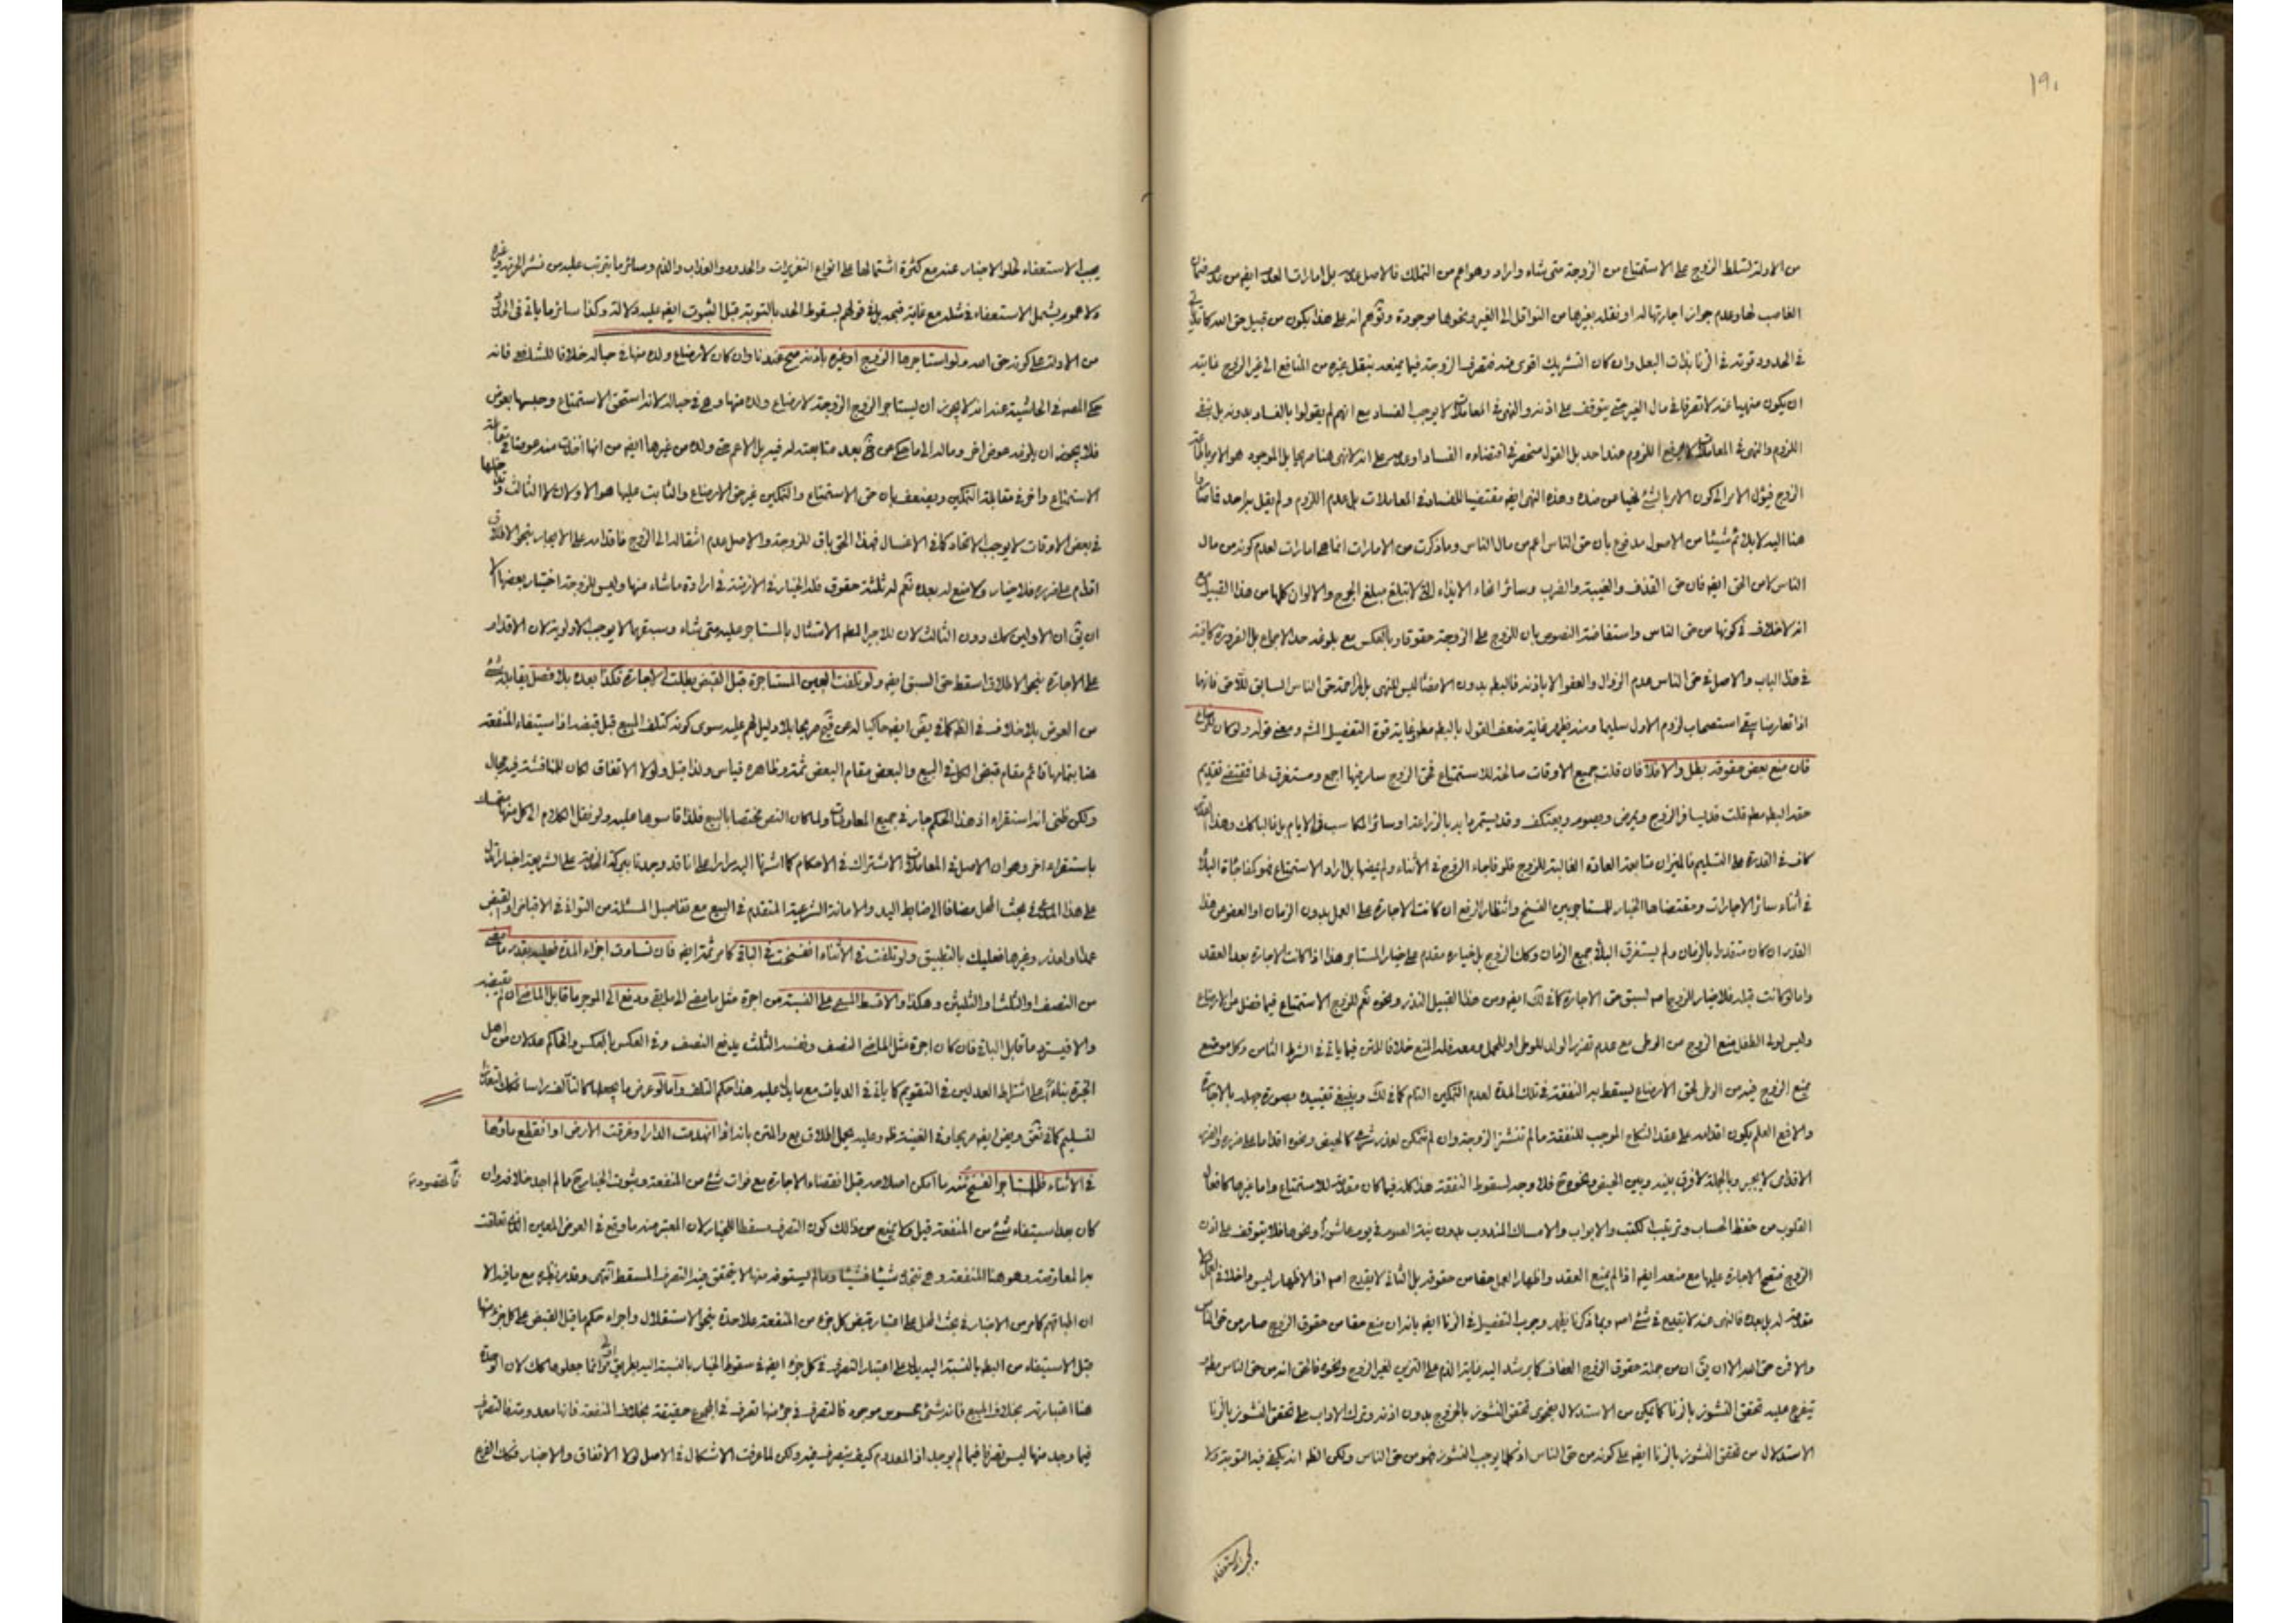 ١٩٠
من الادلة لتسلط الزوج على الاستمتاع من الزوجة متى شاء واراد وهو اعم من التملك فالاصل عدمه بل امارات العدم ايضا من عدم ضمان
الغاصب لها وعدم جواز اجارتها له او نقله بغيرها من النواقل الى الغير ونحوها موجودة وتوهم انه على هذا يكون من قبيل حق الله كما يأتي
في الحدود قوته في الزنا بذات البعل وان كان التشريك اقوى منه فتصرف الزوجة فيما يمنعه بنقل غيره من المنافع الى غير الزوج غايته
ان يكون منهيا عنه لا تصرفا في مال الغير حتى يتوقف على اذنه والنهى في المعاملات لا يوجب الفساد مع انهم لم يقولوا بالفساد بدونه بل بنفى
اللزوم والنهى في المعاملات لا يرفع اللزوم عند احد بل القول منحصر في اقتضاءه الفساد او عدمه على انه لا نهى هنا صريحا بل الموجود هو الامر باطاعة
الزوج فيؤل الامر الى كون الامر بالشئ نهيا عن ضده وهذا النهى ايضا مقتضيا للفساد في المعاملات بل عدم اللزوم ولم يقل به احد
هنا اليه لا يلائم شيئا من الاصول مدفوع بأن حق الناس اعم من مال الناس وما ذكرت من الامارات انما هي امارات لعدم كونه من مال
الناس لا من الحق ايضا فان حق القذف والغيبة والضرب وسائر انحاء الايذاء التى لا تبلغ مبلغ الجروح والالوان كلها من هذا القبيل مع
انه لا خلاف في كونها من حق الناس واستفاضة النصوص بان للزوج على الزوجة حقوقا وبالعكس مع بلوغه حد الاجماع بل الضرورة كافية
في هذا الباب والاصل في حق الناس عدم الزوال والعفو الا باذنه فالبطلان بدون الامضاء ليس للنهى بل لمزاحمة حق الناس السابق للاحق فانهما
اذا تعارضا يبقى استصحاب لزوم الاول سليما ومنه يظهر غاية ضعف القول بالبطلان مطلقا وغاية قوة التفصيل المشهور ومعنى قوله ولو كان
فان منع بعض حقوقه بطل والا فلا فان قلت جميع الاوقات صالحة للاستمتاع فحق الزوج سار فيها اجمع ومستغرق لها فمقتضى تقديم
حقه البطلان مطلقا قلت قد يسافر الزوج ويمرض ويصوم ويعتكف وقد يستمر دابه بالزراعة او سائر المكاسب في الايام بل الغالب كك وهذا القدر
كاف في القدرة على التسليم فالميزان متابعة العادة الغالبة للزوج فلو فاجاء الزوج في الأثناء ولم يمضها بل اراد الاستمتاع فهو كمفاجاة
في أثناء سائر الاجارات ومقتضاها الخيار للمستاجر بين الفسخ وانتظار الرفع ان كانت الاجارة على العمل بدون الزمان او العوض عن هذا
القدر ان كان متقدرا بالزمان ولم يستغرق الباقي جميع الزمان وكك الزوج بل خياره مقدم على خيار المستاجر هذا اذا كانت الاجارة بعد العقد
واما لو كانت قبله فلا خيار للزوج اصلا لسبق حق الاجارة كما في لك ايضا ومن هذا القبيل النذر ونحوه نعم للزوج الاستمتاع فيما فضل من الارضاع
وليس لولى الطفل منع الزوج من الوطى مع عدم تضرر الولد للوطى او للحمل ومعه فله المنع خلافا للمتن فيما يأتى في الشرط الثامن وكل موضع
يمنع الزوج فيه من الوطى لحق الارضاع يسقط به النفقة في تلك المدة لعدم التمكين التام كما في لك وينبغى تقييده بصورة جهله بالاجارة
والا فمع العلم يكون اقدامه على عقد النكاح الموجب للنفقة ما لم تنشز الزوجة وان لم تتمكن لعذر شرعى كالحيض ونحوه اقداما على ضرره والضرر
الاقدامى لا يجبر وبالجملة لا فرق بينه وبين الحيض ونحوه فلا وجه لسقوط النفقة هذا كله فيما كان مفوتا للاستمتاع واما غيرها كافعال
القلوب من حفظ الحساب وترتيب الكتب والابواب والامساك المندوب بدون نية الصوم في يوم عاشورا ونحوها فلا يتوقف على اذن
الزوج فتصح الاجارة عليها مع منعه ايضا اذا لم يمنع العقد واظهار العمل حقا من حقوقه بل الثانى لا يقدح اصلا اذ الاظهار ليس داخلا في العمل
مقدمة له بل بعده فالنهى عنه لا يقدح في شئ اصلا وبما ذكرنا يظهر وجوب التفصيل في الزنا ايضا بانه ان منع حقا من حقوق الزوج صار من حق الناس
والا فمن حق الله الا ان يق ان من جملة حقوق الزوج العفاف كما يرشد اليه غاية الذم على التزين لغير الزوج ونحوه فالحق انه من حق الناس مطلقا
يتفرع عليه تحقق النشوز بالزنا كما يمكن من الاستدلال بفحوى تحقق النشوز بالخروج بدون اذنه وترك الاداب على تحقق النشوز بالزنا
الاستدلال من تحقق النشوز بالزنا ايضا على كونه من حق الناس اذ كلما يوجب النشوز فهو من حق الناس ولكن الظ انه يكفى فيه التوبة ولا
يجب الاستعفاء
يجب الاستعفاء لخلو الاخبار عنه مع كثرة اشتمالها على انواع التعزيرات والحدود والعذاب والذم وسائر ما يترتب عليه من نشر الحرمة وغيره
ولا عموم يشمل الاستعفاء في مثله مع غاية قبحه بل في قولهم بسقوط الحد بالتوبة قبل الثبوت ايضا عليه دلالة وكذا سائر ما يأتى في الحدود
من الادلة على كونه حق الله ولو استاجرها الزوج او غيره باذنه صح عندنا وان كان لارضاع ولده منها في حباله خلافا للشافعى فانه
حكى المصه في الحاشية عنه انه لا يجوز ان يستاجر الزوج الزوجة لارضاع ولده منها وهى في حباله لانه استحق الاستمتاع وحبسها بعوض
فلا يجوز ان يلزمه عوض اخر ومال الى ما حكى عن خ بعد متابعته له فيه بل الاعم حتى ولده من غيرها ايضا من انها اخذت منه عوضا في مقابلة
الاستمتاع واخر في مقابلة التمكين ويضعف بأن حق الاستمتاع والتمكين غير حق الارضاع والثابت عليها هو الاولان لا الثالث وتداخلها
في بعض الاوقات لا يوجب الاتحاد كما في الاغسال فهذا الحق باق للزوجة والاصل عدم انتقاله الى الزوج فاقدامه على الايجار بنحو الاطلاق
اقدام على ضرره فلا خيار ولا منع له بعده نعم له ثلثة حقوق فله الخيار في الازمنة في ارادة ما شاء منها وليس للزوجة اختيار بعضها الا
ان يق ان الاولين كك دون الثالث لان للاجير المطلق الامتثال بالمستاجر عليه متى شاء وسبقهما لا يوجب الاولوية لان الاقدام
على الاجارة بنحو الاطلاق اسقط حق السبق ايضا ولو تلفت العين المستاجرة قبل القبض بطلت الاجارة فكذا بعده بلا فصل يقابله شئ
من العوض بلا خلاف في الظ كما في يض ايضا حاكيا له عن صريحا بلا دليل لهم عليه سوى كونه كتلف المبيع قبل قبضه اذ استيفاء المنفعة
هنا بتمامها قائم مقام قبض الكل في البيع والبعض مقام البعض ثمة وظاهره قياس ولذا قيل ولولا الاتفاق لكان للمناقشة فيه مجال
ولكن ظنى انه استقراء اذ هذا الحكم جار في جميع المعاوضات ولما كان النص مختصا بالبيع فلذا قاسوها عليه ولو نقل الكلام الى كل منها
باستقراء اخر وهو ان الاصل في المعاملات الاشتراك في الاحكام كما اشرنا اليه مرارا على انا قد وجدنا ببركة الخوض على الشريعة اخبارا تدل
على هذا المدعى في بحث الحمل مضافا الى ضابط اليد والامانة الشرعية المتقدم في البيع مع تفاصيل المسئلة من التوانى في الاقباض او القبض
عمدا او لعذر وغيرها فعليك بالتطبيق ولو تلفت في الأثناء انفسخت في الباقي كما مر ثمة ايضا فان تساوت اجزاء المدة فعليه بقدر ما مضى
من النصف او الثلث او الثلثين وهكذا والا قسط المسمى على النسبة من اجرة مثل ما مضى الى ما بقى ودفع الى الموجر ما قابل الماضى ان لم يقبضه
والا فيسترد ما قابل الباقى فان كان اجرة مثل الماضى النصف وقصد الثلث يدفع النصف وفى العكس بالعكس والحاكم عدلان من اهل
الخبرة بناء على اشتراط العدلين في التقويم كما يأتى في الديات مع ما يدل عليه هذا حكم التلف واما لو عرض ما يجعلها كالتالف راسا فكك لتعذر
التسليم كما في تعق ويض ايضا صريحا وفى الغنية ظ وعليه يحمل اطلاق يع والمتن بانه اذا انهدمت الدار او غرقت الارض او انقطع ماؤها
في الاثناء فللمستاجر الفسخ عند ما امكن اصلاحه قبل انقضاء الاجارة مع فوات شئ من المنفعة وثبوت الخيار ح ما لم اجد خلافه وان
كان بعد استيفاء شئ من المنفعة قيل ولا يمنع من ذلك كون التصرف مسقطا للخيار لان المعتبر منه ما وقع في العوض المعين الذى تعلقت
به المعاوضة وهو هنا المنفعة وهى تتجدد شيئا فشيئا وما لم يستوفه منها لا يتحقق فيه التصرف المسقط انتهى وقد مر نظيره مع ما فيه الا
ان المباقهم كما مر من الاخبار في بحث الحمل على اعتبار قبض كل جزء من المنفعة علاحدة بنحو الاستقلال واجراء حكم ما قبل القبض على كل جزء منها
قبل الاستيفاء من البطلان بالنسبة اليه يدل على اعتبار التصرف في كل جزء ايضا في سقوط الخيار بالنسبة اليه بطريق اولى وانما جعلوها كك لان الوحدة
هنا اعتبارية بخلاف المبيع فانه شئ محسوس موجود فالتصرف في جزء منها تصرف في المجموع حقيقة بخلاف المنفعة فانها معدومة فالتصرف
فيما وجد منها ليس تصرفا فيما لم يوجد اذ المعدوم كيف يتصرف فيه ولكن لما عرفت الاشكال في الاصل لولا الاتفاق والاخبار فكك الفرع